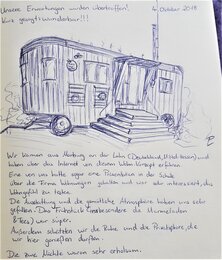 Unsere Erwartungen wurden übertroffen!
4. Oktober 2018
Kurz gesagt: wunderbar!!!
Wir kamen aus Marburg an der Lahn (Deutschland, Mittelhessen) und
haben über das Internet von diesem Wohn Konzept erfahren
Eine von uns hatte sogar eine Präsentation in der Schule
über die Firma Wohnwagen gehalten und war sehr interessiert, das
Wohngefühl zu haben.
Die Ausstattung und die gemütliche Atmosphäre haben uns sehr
gefallen. Das Frühstück (insbesondere die Marmeladen
& Tees) war super.
Außerdem schätzten wir die Ruhe und die Privatsphäre, die
wir hier genießen durften.
Die zwei Nächte waren sehr erholsam.